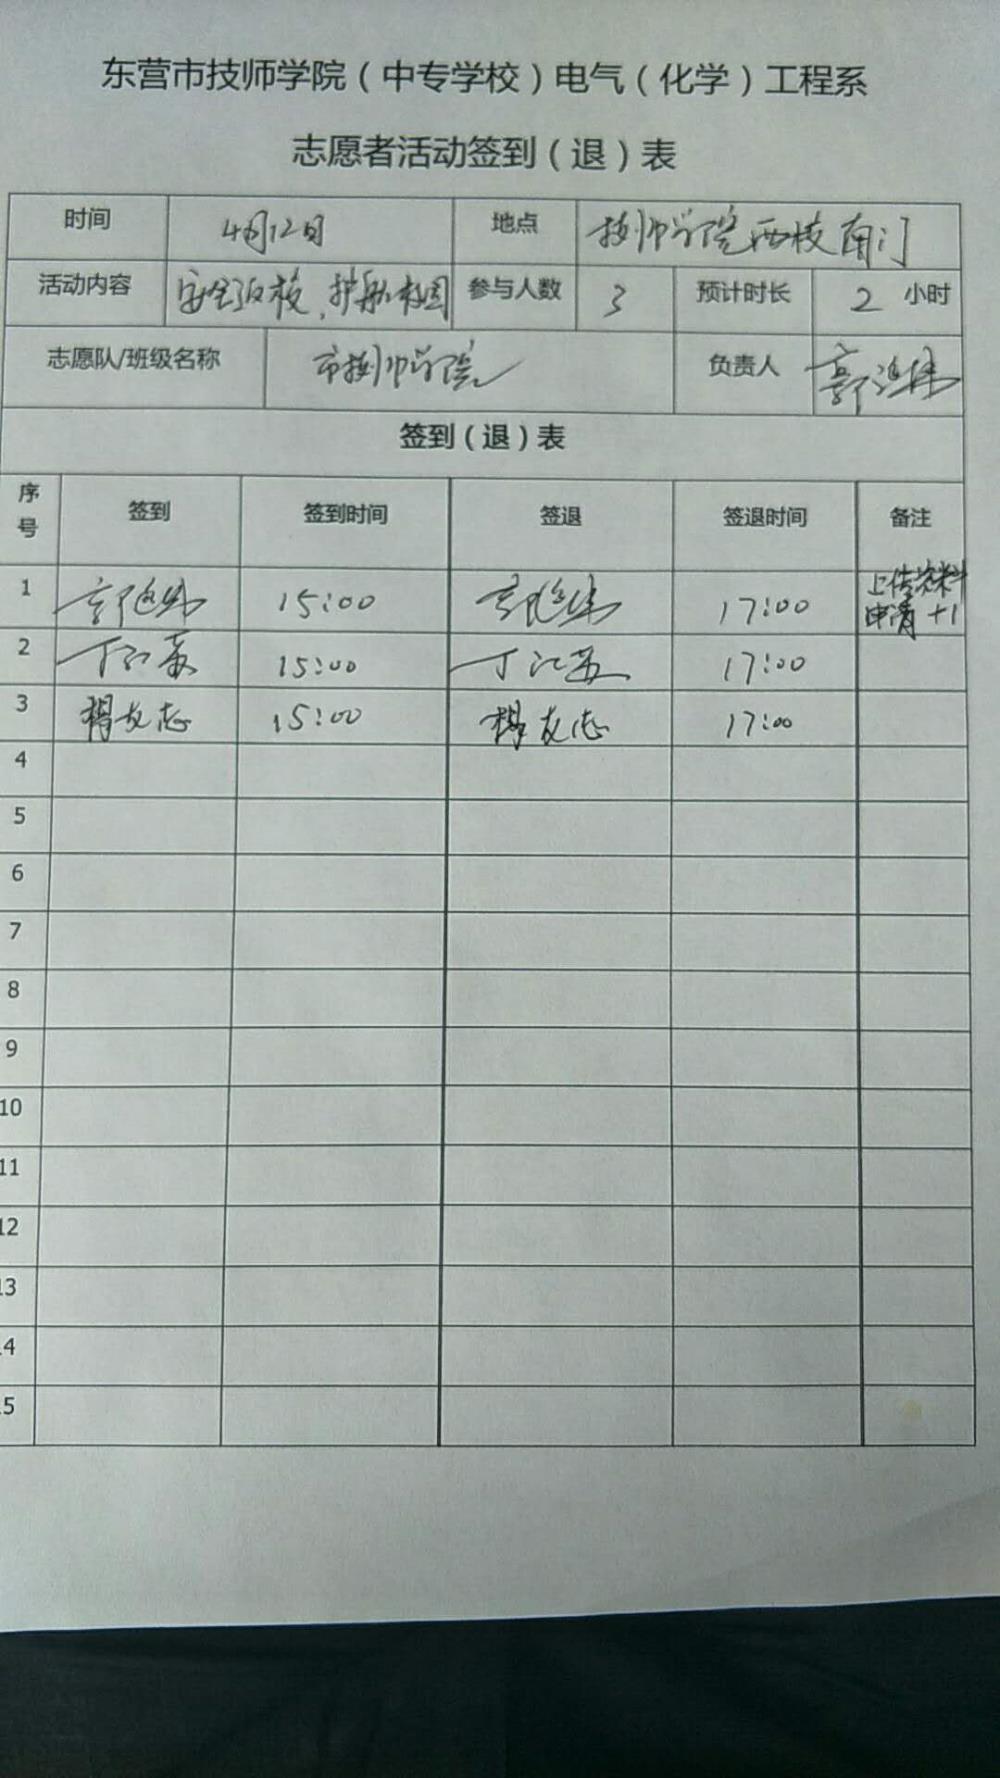 东营市技师学院（中专学校）电气（化学）工程系
志愿者活动签到（退）表
时间 4月12日 地点 技师学院西校南门
活动内容 安全返校、护航校园 参与人数 3 预计时长 2 小时
志愿队/班级名称 市技师学院 负责人 郭
签到（退）表
序号 签到 签到时间 签退 签退时间 备注
1 郭 15:00 郭 17:00 上传资料
申请 +1
2 丁江苏 15:00 丁江苏 17:00
3 杨友志 15:00 杨友志 17:00
4
5
6
7
8
9
10
11
12
13
14
15